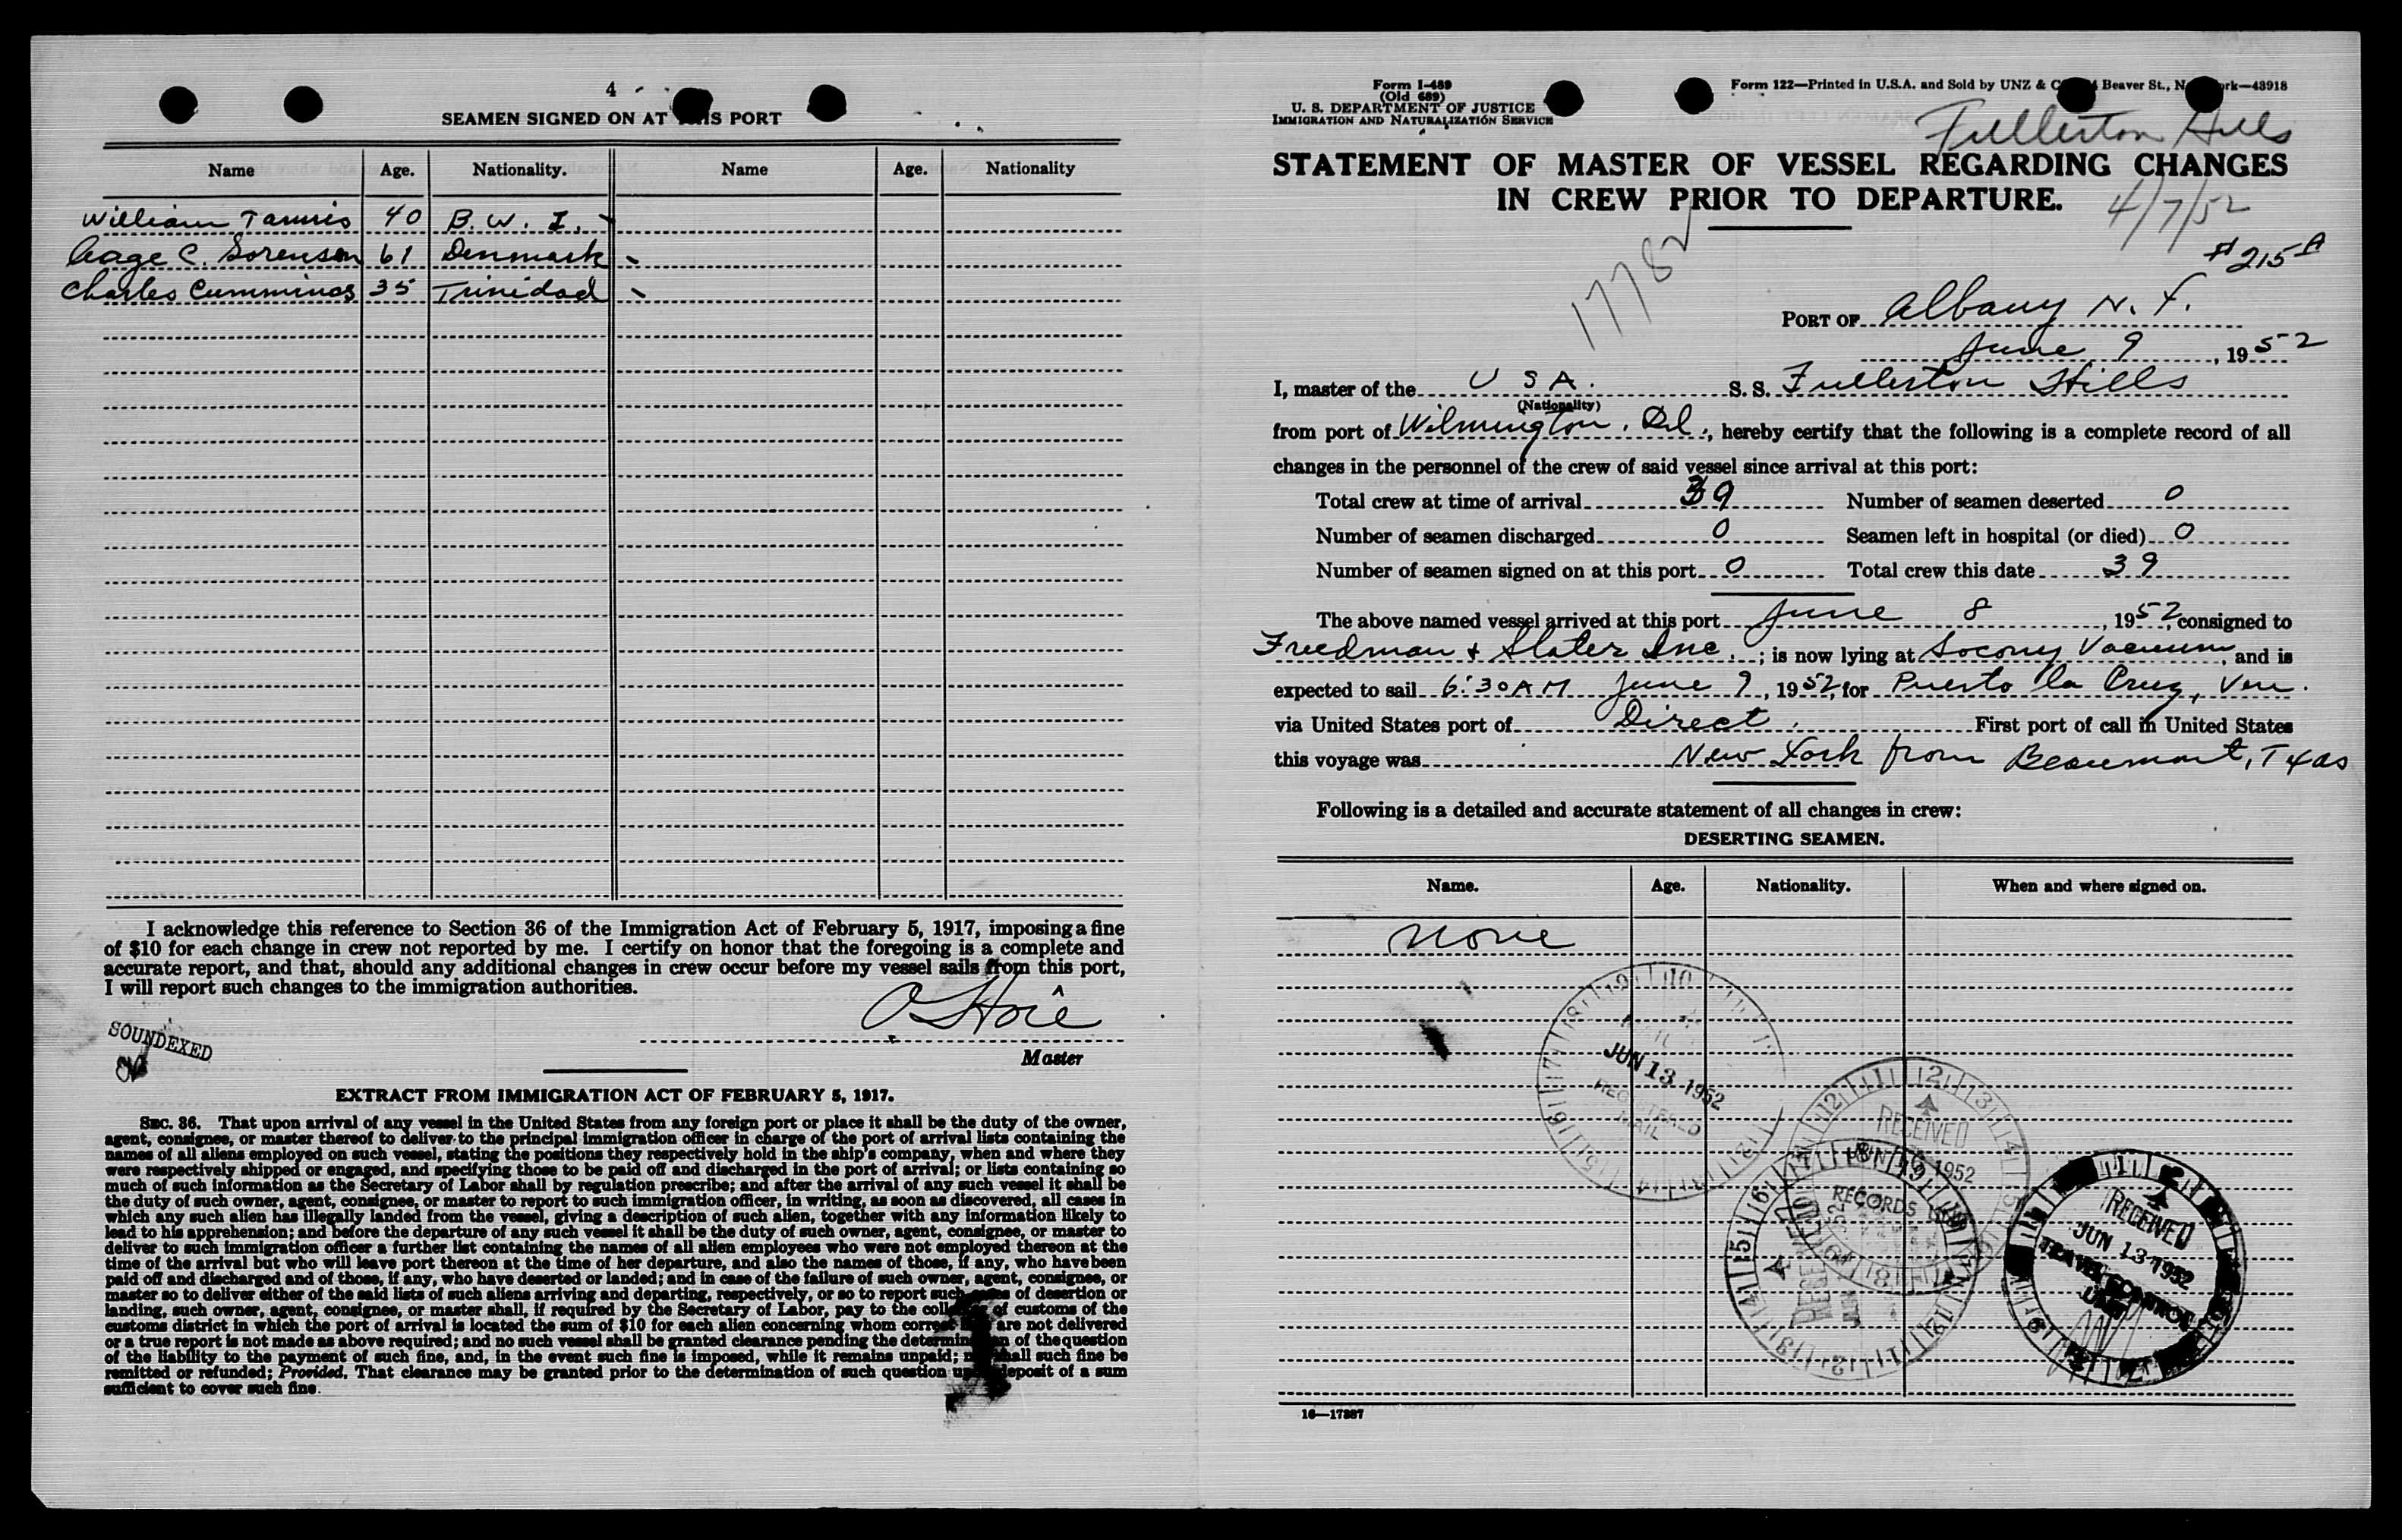 4
SEAMEN SIGNED ON AT THIS PORT
Name Age. Nationality. Name Age. Nationality
William Tannis 40 B. W. I.
Aage C. Sorensen 61 Denmark
Charles Cummings 35 Trinidad
I acknowledge this reference to Section 36 of the Immigration Act of February 5, 1917, imposing a fine
of $10 for each change in crew not reported by me. I certify on honor that the foregoing is a complete and
accurate report, and that, should any additional changes in crew occur before my vessel sails from this port,
I will report such changes to the immigration authorities.
Master
SOUNDEXED
EXTRACT FROM IMMIGRATION ACT OF FEBRUARY 5, 1917.
SEC. 36. That upon arrival of any vessel in the United States from any foreign port or place it shall be the duty of the owner,
agent, consignee, or master thereof to deliver to the principal immigration officer in charge of the port of arrival lists containing the
names of all aliens employed on such vessel, stating the positions they respectively hold in the ship's company, when and where they
were respectively shipped or engaged, and specifying those to be paid off and discharged in the port of arrival; or lists containing so
much of such information as the Secretary of Labor shall by regulation prescribe; and after the arrival of any such vessel it shall be
the duty of such owner, agent, consignee, or master to report to such immigration officer, in writing, as soon as discovered, all cases in
which any such alien has illegally landed from the vessel, giving a description of such alien, together with any information likely to
lead to his apprehension; and before the departure of any such vessel it shall be the duty of such owner, agent, consignee, or master to
deliver to such immigration officer a further list containing the names of all alien employees who were not employed thereon at the
time of the arrival but who will leave port thereon at the time of her departure, and also the names of those, if any, who have been
paid off and discharged and of those, if any, who have deserted or landed; and in case of the failure of such owner, agent, consignee, or
master so to deliver either of the said lists of such aliens arriving and departing, respectively, or so to report such cases of desertion or
landing, such owner, agent, consignee, or master shall, if required by the Secretary of Labor, pay to the collector of customs of the
customs district in which the port of arrival is located the sum of $10 for each alien concerning whom correct are not delivered
or a true report is not made as above required; and no such vessel shall be granted clearance pending the determination of the question
of the liability to the payment of such fine, and, in the event such fine is imposed, while it remains unpaid; nor shall such fine be
remitted or refunded; Provided, That clearance may be granted prior to the determination of such question upon deposit of a sum
sufficient to cover such fine.
Form I-489
(Old 689)
U. S. DEPARTMENT OF JUSTICE
IMMIGRATION AND NATURALIZATION SERVICE
Form 122—Printed in U.S.A. and Sold by UNZ & C Beaver St., N rk—43918
Fullerton Hills
STATEMENT OF MASTER OF VESSEL REGARDING CHANGES
IN CREW PRIOR TO DEPARTURE.
4/7/52
17782
#215A
PORT OF Albany N. Y.
June 9, 1952
I, master of the U S A. S. S. Fullerton Hills
(Nationality)
from port of Wilmington. Del., hereby certify that the following is a complete record of all
changes in the personnel of the crew of said vessel since arrival at this port:
Total crew at time of arrival 39 Number of seamen deserted 0
Number of seamen discharged 0 Seamen left in hospital (or died) 0
Number of seamen signed on at this port 0 Total crew this date 39
The above named vessel arrived at this port June 8, 1952, consigned to
Freedman & Slater Inc.; is now lying at Socony Vacuum, and is
expected to sail 6:30 AM June 9, 1952, for Puerto la Cruz, Ven.
via United States port of Direct. First port of call in United States
this voyage was New York from Beaumont, Texas
Following is a detailed and accurate statement of all changes in crew:
DESERTING SEAMEN.
Name. Age. Nationality. When and where signed on.
None
JUN 13 1952
REGISTERED
MAIL
RECEIVED
1952
RECORDS
RECEIVED
JUN 13 1952
TRAVEL CONTROL
UNIT
16—17387